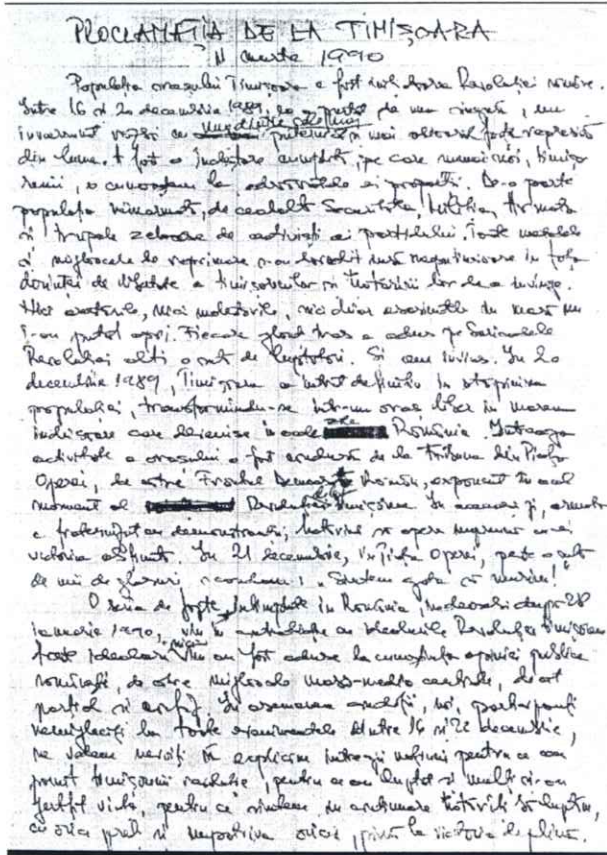 PROCLAMAȚIA DE LA TIMIȘOARA
11 martie 1990
Populația orașului Timișoara a fost inițiatoarea Revoluției române.
Între 16 și 20 decembrie 1989, ea a purtat, de una singură, un
înverșunat război cu unul dintre cele mai puternice și mai odioase sisteme represive
din lume. A fost o încleștare cumplită, pe care numai noi, timișo-
renii, o cunoaștem la adevăratele ei proporții. De-o parte
populația neînarmată, de cealaltă Securitatea, Miliția, Armata
și trupele zeloase de activiști ai partidului. Toate metodele
și mijloacele de reprimare s-au dovedit însă neputincioase în fața
dorinței de libertate a timișorenilor și hotărârii lor de a învinge.
Nici arestările, nici molestările, nici chiar asasinatele în masă nu
i-au putut opri. Fiecare glonț tras a adus pe baricadele
Revoluției alți o sută de luptători. Și am învins. În 20
decembrie 1989, Timișoara a intrat definitiv în stăpînirea
populației, transformîndu-se într-un oraș liber în marea
închisoare care devenise în acele zile România. Întreaga
activitate a orașului a fost condusă de la tribuna din Piața
Operei, de către Frontul Democratic Român, exponent în acel
moment al Revoluției din Timișoara. În aceeași zi, armata
a fraternizat cu demonstranții, hotărînd să apere împreună cu ei
victoria obținută. În 21 decembrie, în Piața Operei, peste o sută
de mii de glasuri scandau: „Sîntem gata să murim!"
O serie de fapte întîmplate în România, îndeosebi după 28
ianuarie 1990, vin în contradicție cu idealurile Revoluției din Timișoara
Aceste idealuri nici nu au fost aduse la cunoștința opiniei publice
românești, de către mijloacele mass-media centrale, decît
parțial și confuz. În asemenea condiții, noi, participanții
nemijlociți la toate evenimentele dintre 16 și 22 decembrie,
ne vedem nevoiți să explicăm întregii națiuni pentru ce au
pornit timișorenii Revoluția, pentru ce au luptat și mulți și-au
jertfit viața, pentru ce sîntem în continuare hotărîți să luptăm,
cu orice preț și împotriva oricui, pînă la victoria deplină.